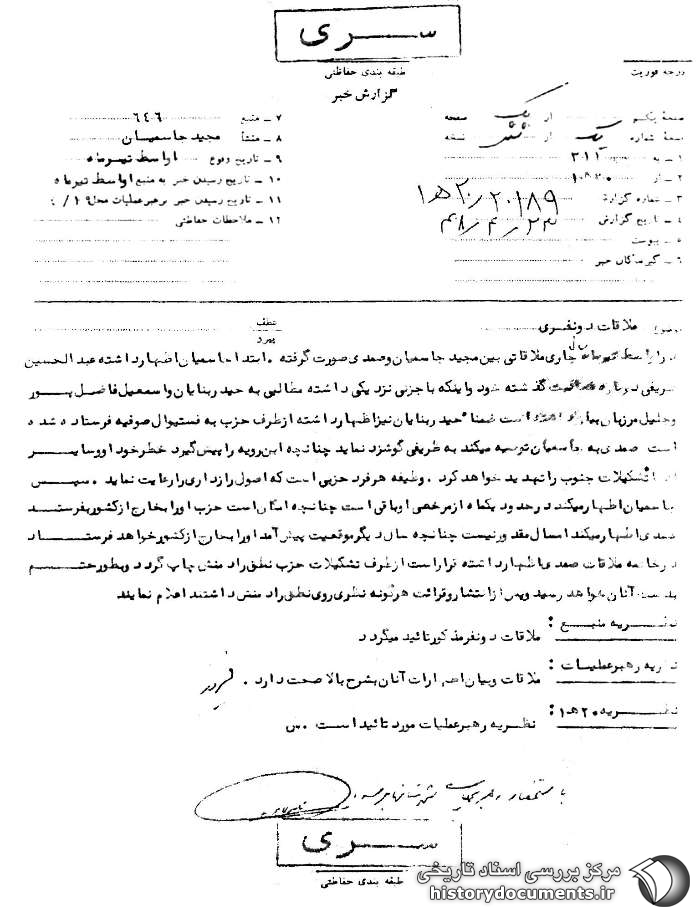 ســـری
طبقه بندی حفاظتی
درجه فوریت
گزارش خبر
صفحه یکم از یک صفحه
نسخه شماره یک از نسخه
۱ ـ به ۳۱۲
۲ ـ از
۳ ـ شماره گزارش ۲۰۱۸۹ / ۲۰ ه‍ ۱
۴ ـ تاریخ گزارش ۴۸/۴/۲۳
۵ ـ پیوست
۶ ـ گیرندگان خبر
۷ ـ منبع ۶۴۰۶
۸ ـ منشأ مجید جاسمیان
۹ ـ تاریخ وقوع اواسط تیرماه
۱۰ ـ تاریخ رسیدن خبر به منبع اواسط تیرماه
۱۱ ـ تاریخ رسیدن خبر برهبر عملیات محل ۴/۱۹
۱۲ ـ ملاحظات حفاظتی
موضوع ملاقات دونفری
عطف
پیرو
در اواسط تیرماه سال جاری ملاقاتی بین مجید جاسمیان و صمدی صورت گرفته . ابتدا جاسمیان اظهار داشته عبدالحسین
شریفی درباره گذشته خود و اینکه با جزنی نزدیکی داشته مطالبی به حید ربنایان واسمعیل فاضل پور
وجلیل مرزبان است ضمنا حید ربنایان نیز اظهار داشته از طرف حزب به فستیوال صوفیه فرستاده شده
است . صمدی به جاسمیان توصیه میکند به طریقی گوشزد نماید چنانچه این رویه را پیش گیرد خطر خود او وسایر
تشکیلات جنوب را تهدید خواهد کرد . وظیفه هر فرد حزبی است که اصول رازداری را رعایت نماید . سپس
جاسمیان اظهار میکند در حدود یکماه از مرخصی او باقی است چنانچه امکان است حزب او را بخارج از کشور بفرستد
صمدی اظهار میکند امسال مقدور نیست چنانچه سال دیگر موقعیت پیش آمد او را بخارج از کشور خواهد فرستاد
در خاتمه ملاقات صمدی اظهار داشته قرار است از طرف تشکیلات حزب نطق رادمنش چاپ گردد وبطور حتم
بدست آنان خواهد رسید وپس از انتشار وقرائت هرگونه نظری روی نطق رادمنش داشتند اعلام نمایند
نظریه منبع :
ملاقات دونفر مذکور تائید میگردد
نظریه رهبر عملیات :
ملاقات وبیان اظهارات آنان بشرح بالا صحت دارد .
نظریه ۲۰ ه‍ ۱ :
نظریه رهبر عملیات مورد تائید است . س
ســـری
طبقه بندی حفاظتی
مرکز بررسی اسناد تاریخی
historydocuments.ir